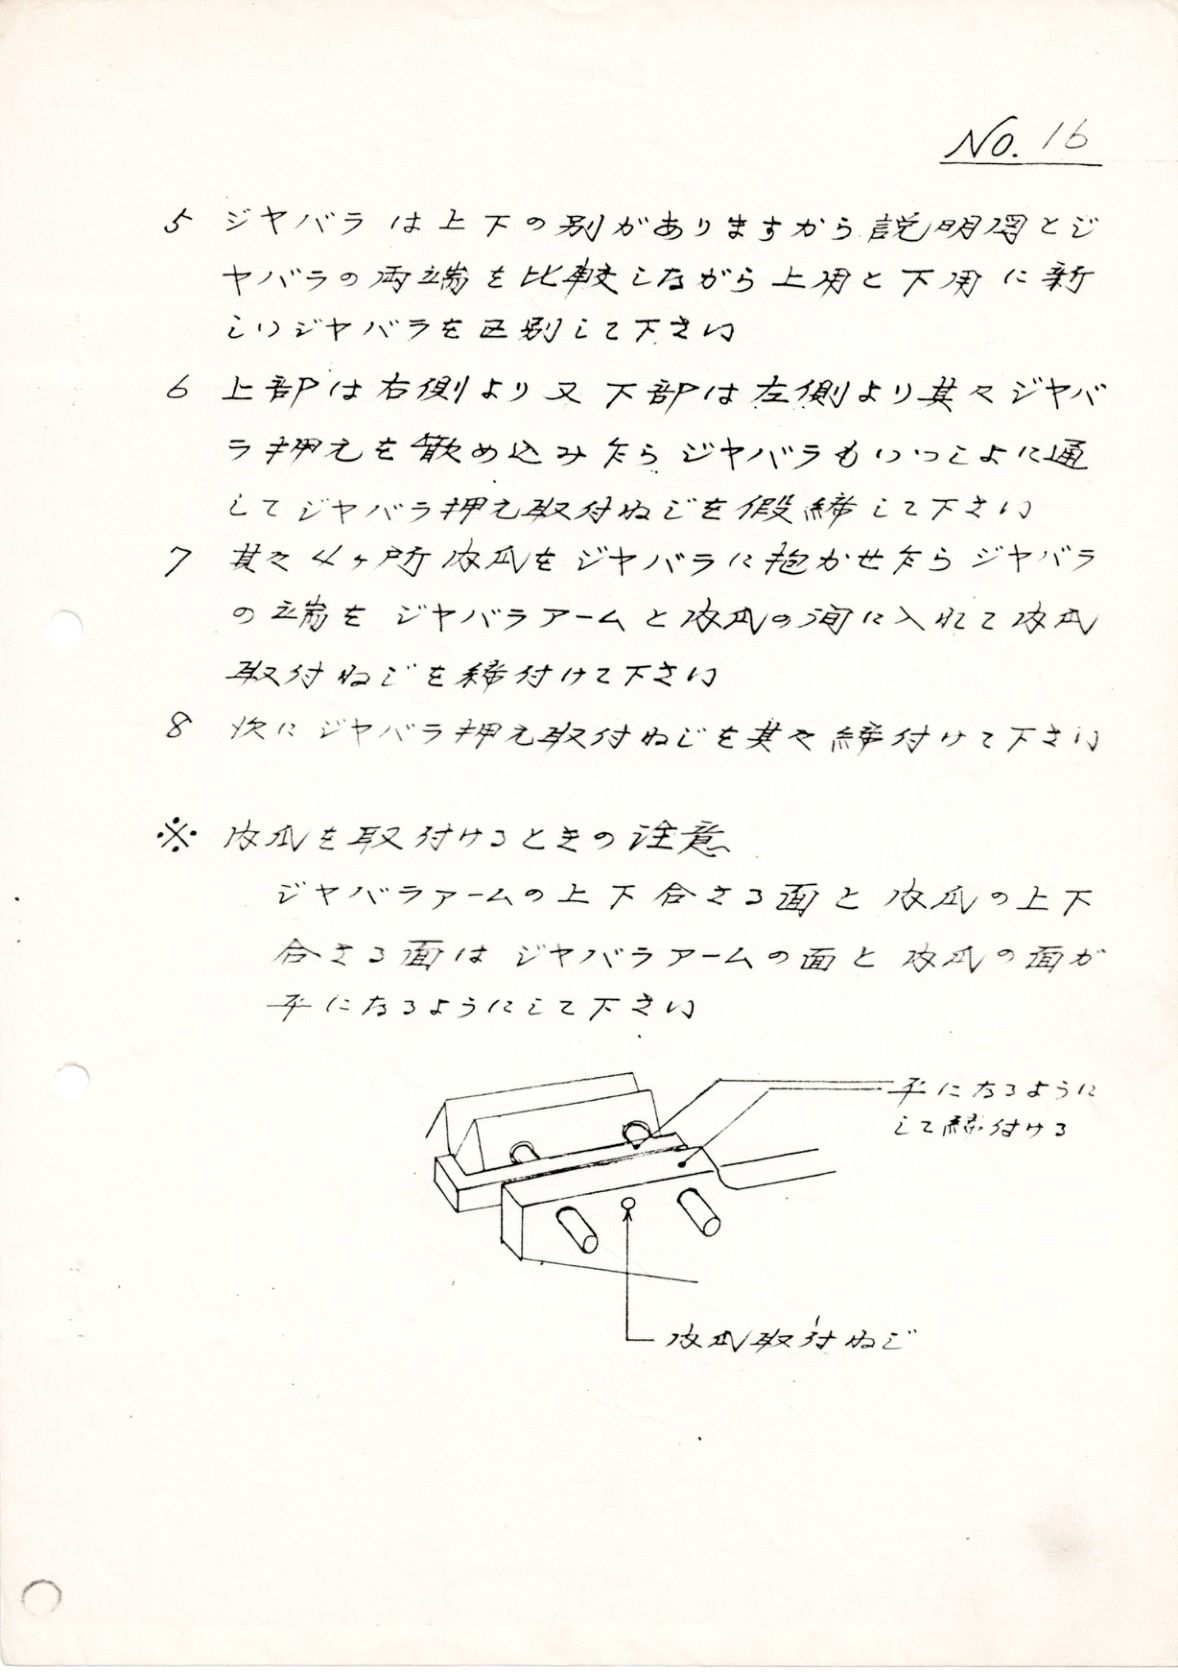 No. 16
5 ジヤバラは上下の別がありますから説明図とジ
ヤバラの両端を比較しながら上用と下用に新
しいジヤバラを区別して下さい
6 上部は右側より又下部は左側より其々ジヤバ
ラ押えを嵌め込み乍らジヤバラもいつしよに通
してジヤバラ押え取付ねじを假締して下さい
7 其々4ヶ所内爪をジヤバラに抱かせ乍らジヤバラ
の端をジヤバラアームと内爪の間に入れて内爪
取付ねじを締付けて下さい
8 次にジヤバラ押え取付ねじを其々締付けて下さい
※ 内爪を取付けるときの注意
ジヤバラアームの上下合さる面と内爪の上下
合さる面はジヤバラアームの面と内爪の面が
平になるようにして下さい
平になるように
して締付ける
内爪取付ねじ